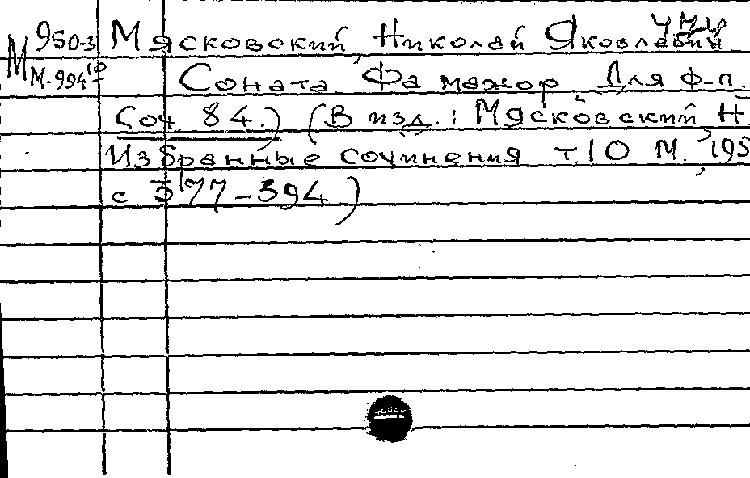 М 950-3 Мясковский, Николай Яковлевич
М-994 Соната Фа мажор. Для ф-п.
Соч 84.) (В изд.: Мясковский Н
Избранные сочинения т10 М., 195
с 377-394)